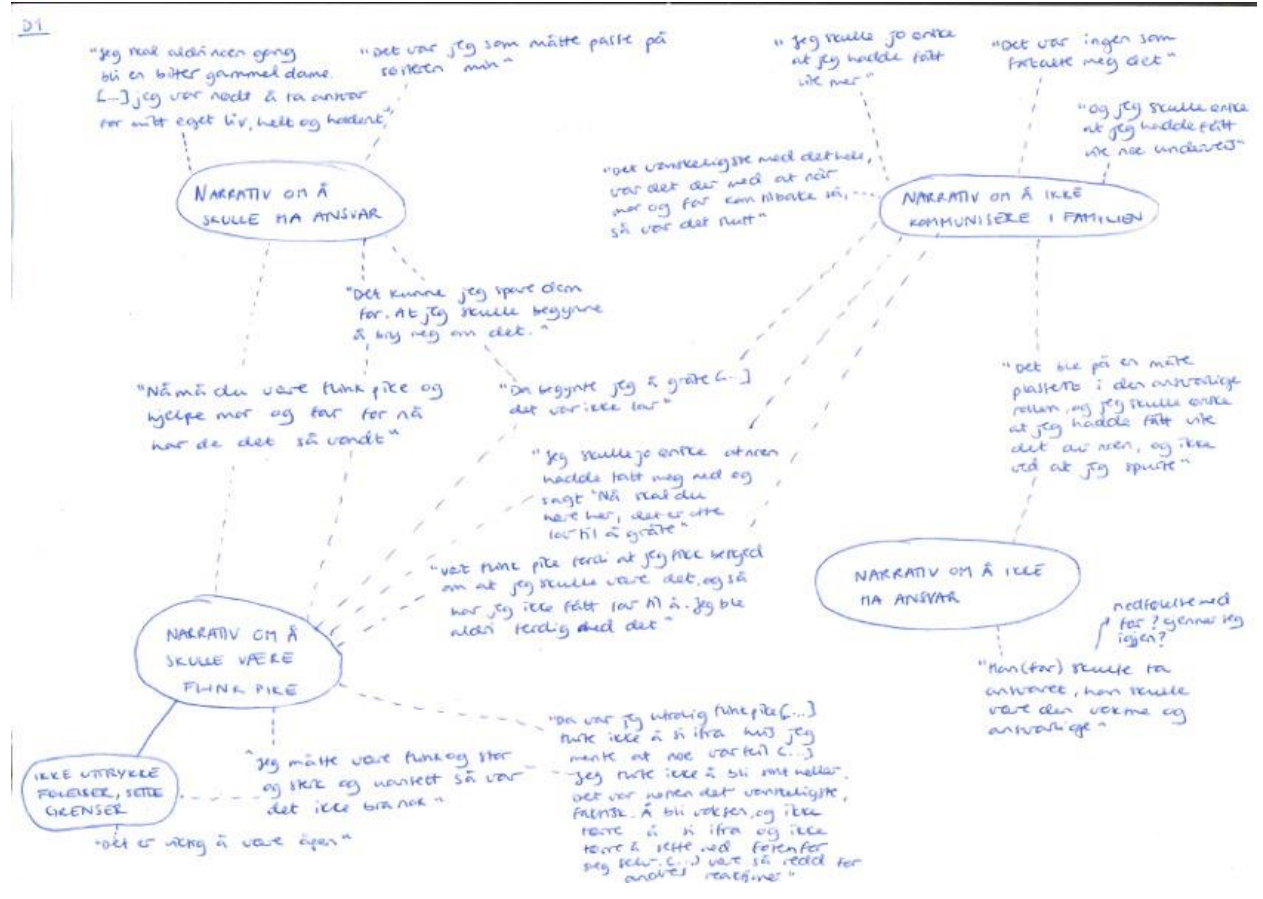 D1
"Jeg skal aldri noen gang
bli en bitter gammel dame.
[...] jeg var nødt å ta ansvar
for mitt eget liv, helt og holdent"
"Det var jeg som måtte passe på
søsteren min"
NARRATIV OM Å
SKULLE HA ANSVAR
"Jeg skulle jo ønske
at jeg hadde fått
vite mer"
"Det var ingen som
fortalte meg det"
"og jeg skulle ønske
at jeg hadde fått
vite noe underveis"
"Det vanskeligste med det hele,
var det der med at når
mor og far kom tilbake så,
så var det slutt"
NARRATIV OM Å IKKE
KOMMUNISERE I FAMILIEN
"Det kunne jeg spare dem
for. At jeg skulle begynne
å bry meg om det."
"Nå må du være flink pike og
hjelpe mor og far for nå
har de det så vondt"
"Da begynte jeg å gråte [...]
det var ikke lov"
"Jeg skulle jo ønske at noen
hadde tatt meg ned og
sagt "Nå skal du
være her, det er
lov til å gråte"
"Det ble på en måte
plassert i den ansvarlige
rollen, og jeg skulle ønske
at jeg hadde fått vite
det av noen, og ikke
ved at jeg spurte"
"vært flink pike fordi at jeg fikk beskjed
om at jeg skulle være det, og så
har jeg ikke fått lov til å. Jeg ble
aldri ferdig med det"
NARRATIV OM Å IKKE
HA ANSVAR
nedfølelse med
far? gjenner seg
igjen?
"Han (far) skulle ta
ansvaret, han skulle
være den voksne og
ansvarlige"
NARRATIV OM Å
SKULLE VÆRE
FLINK PIKE
IKKE UTTRYKKE
FØLELSER, SETTE
GRENSER
"Jeg måtte være flink og stor
og sterk og uansett så var
det ikke bra nok"
"Det er viktig å være åpen"
"Da var jeg utrolig flink pike [...]
turte ikke å si ifra hvis jeg
mente at noe var feil [...]
Jeg turte ikke å bli sint heller.
Det var noen det vanskeligste,
faktisk. Å bli voksen, og ikke
tørre å si ifra og ikke
tørre å sette ned foten for
seg selv. [...] være så redd for
andres reaksjoner"